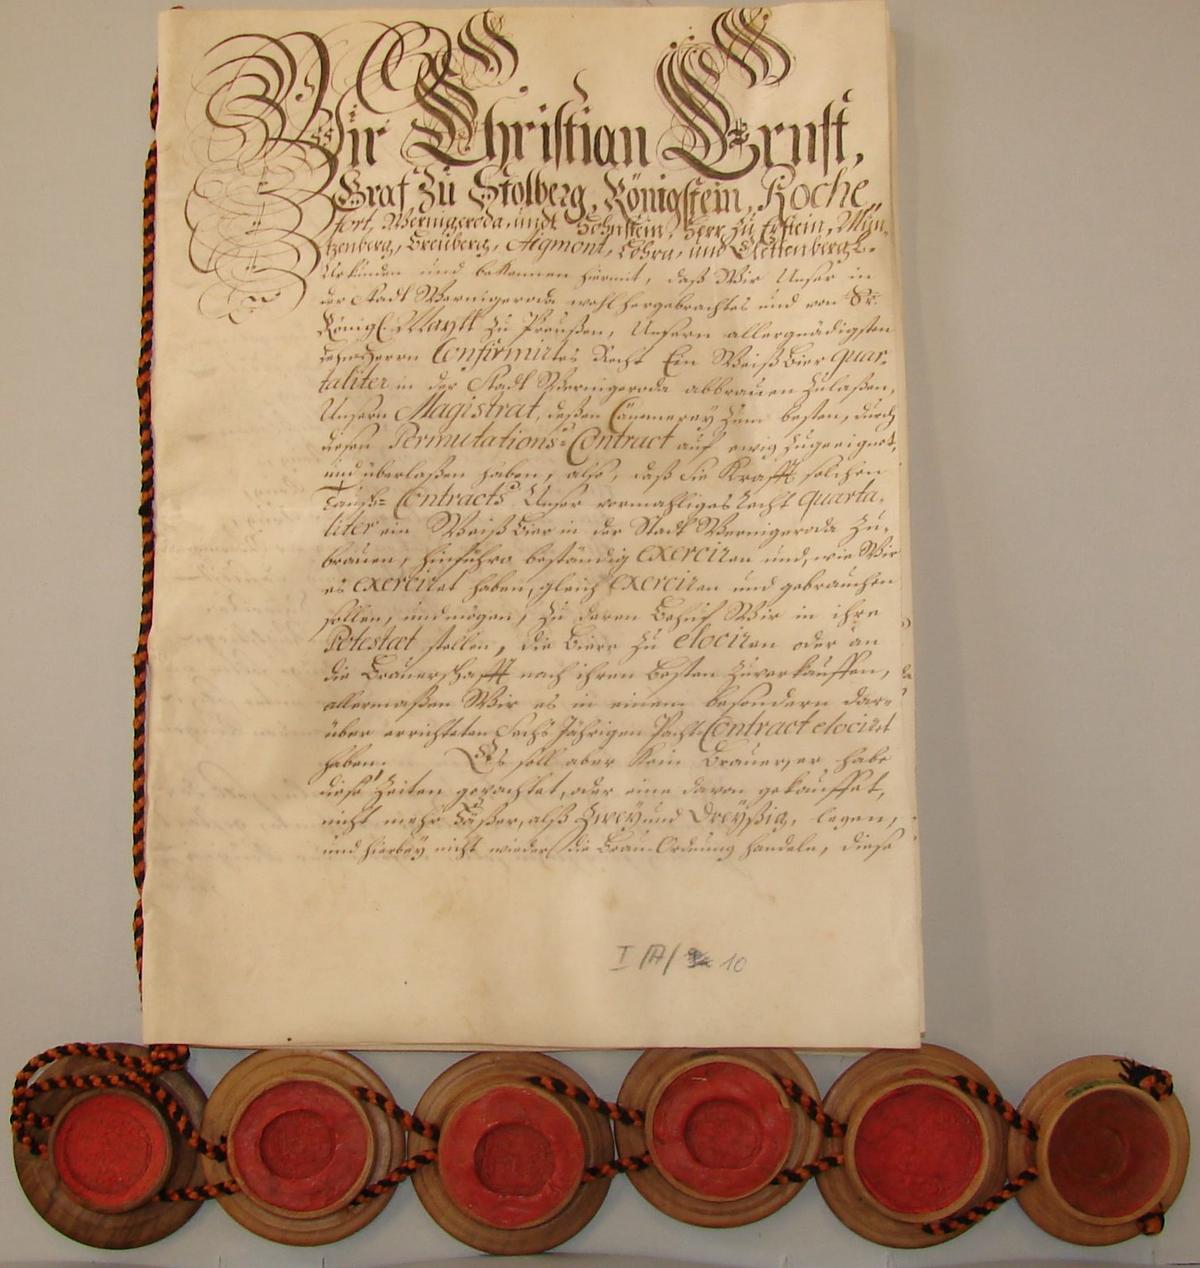 Wir Christian Ernst,
Graf zu Stolberg, Königstein, Roche„
fort, Wernigeroda, undt Hohnstein, Herr zu Epstein, Mün„
tzenberg, Breuberg, Aigmont, Lohra, und Clettenberg
Urkunden und bekennen hiermit, daß Wir Unser in
der Stadt Wernigeroda wohl hergebrachtes und von Sr.
Königl. Maytt zu Preußen, Unsern allergnädigsten
LehnHerrn Confirmirtes Recht Ein Weiß Bier quar„
taliter in der Stadt Wernigeroda abbrauen zulaßen,
Unserm Magistrat, deßen Cämmerey zum besten, durch
diesen Permutations-Contract auf ewig zugeeignet,
und überlaßen haben, also, daß sie Krafft solchen
Tausch-Contracts Unser vormahliges Recht quarta„
liter ein Weiß Bier in der Stadt Wernigeroda zu„
brauen, hinführo beständig exerciren und, wie Wir
es exerciret haben, gleich exerciren und gebrauchen
sollen, und mögen, zu deren Behuf Wir in ihre
Potestæt stellen, die Biere zu elociren oder an
die Brauerschafft nach ihren besten zuverkauffen,
allermaßen Wir es in einem besondern dar„
über errichteten Sechs Jährigen Pacht-Contract elocirt
haben. Es soll aber kein Brauer, er habe
diese Zeiten gepachtet, oder eine davon gekauffet,
nicht mehr Fäßer, alß Zwey und Dreyßig, legen,
und hierbey nicht wieder die Brau-Ordnung handeln, diese
I /A/ 10